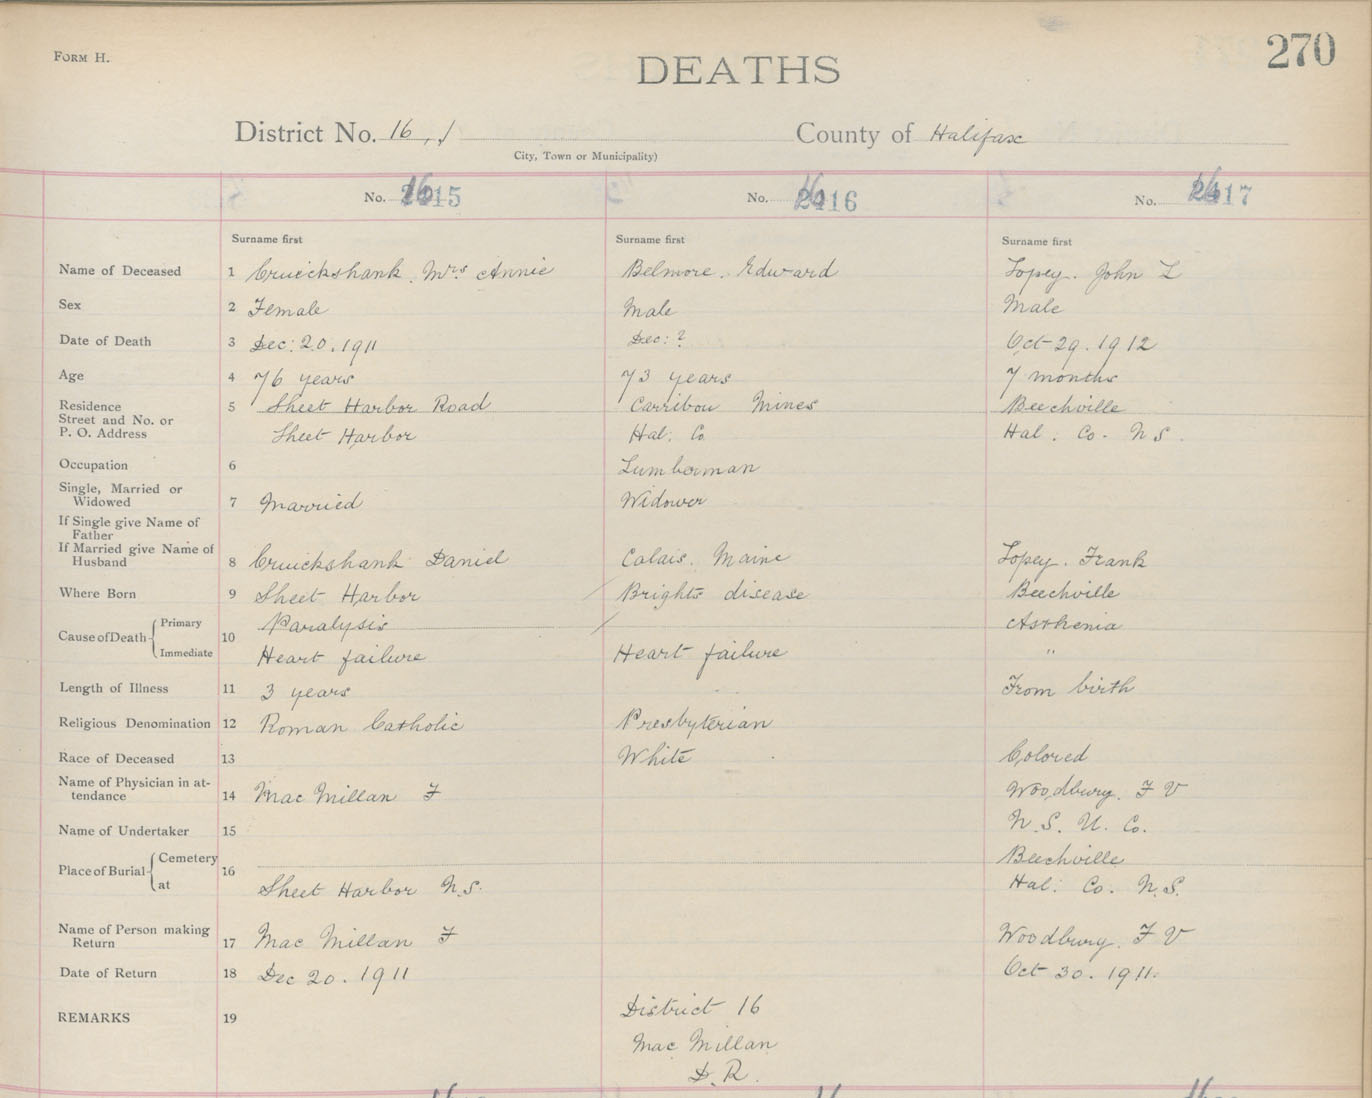 FORM H.
270
DEATHS
District No. 16, 1 County of Halifax
City, Town or Municipality)
No. 1615 No. 1616 No. 1617
Surname first Surname first Surname first
Name of Deceased 1 Cruickshank. Mrs Annie Belmore. Edward Lopey. John L
Sex 2 Female Male Male
Date of Death 3 Dec: 20. 1911 Dec: ? Oct 29. 1912
Age 4 76 years 73 years 7 months
Residence 5 Sheet Harbor Road Carribou Mines Beechville
Street and No. or
P. O. Address Sheet Harbor Hal. Co Hal. Co. N S.
Occupation 6 Lumberman
Single, Married or
Widowed 7 Married Widower
If Single give Name of
Father
If Married give Name of
Husband 8 Cruickshank Daniel Calais. Maine Lopey. Frank
Where Born 9 Sheet Harbor Brights disease Beechville
Cause of Death 10 Primary Paralysis Asthenia
Immediate Heart failure Heart failure "
Length of Illness 11 3 years From birth
Religious Denomination 12 Roman Catholic Presbyterian
Race of Deceased 13 White Colored
Name of Physician in at-
tendance 14 Mac Millan F Woodbury. F V
Name of Undertaker 15 N. S. U. Co.
Place of Burial 16 Cemetery Beechville
at Sheet Harbor N.S. Hal: Co. N.S.
Name of Person making
Return 17 Mac Millan F Woodbury. F V
Date of Return 18 Dec 20. 1911 Oct 30. 1911.
REMARKS 19 District 16
Mac Millan
D. R.